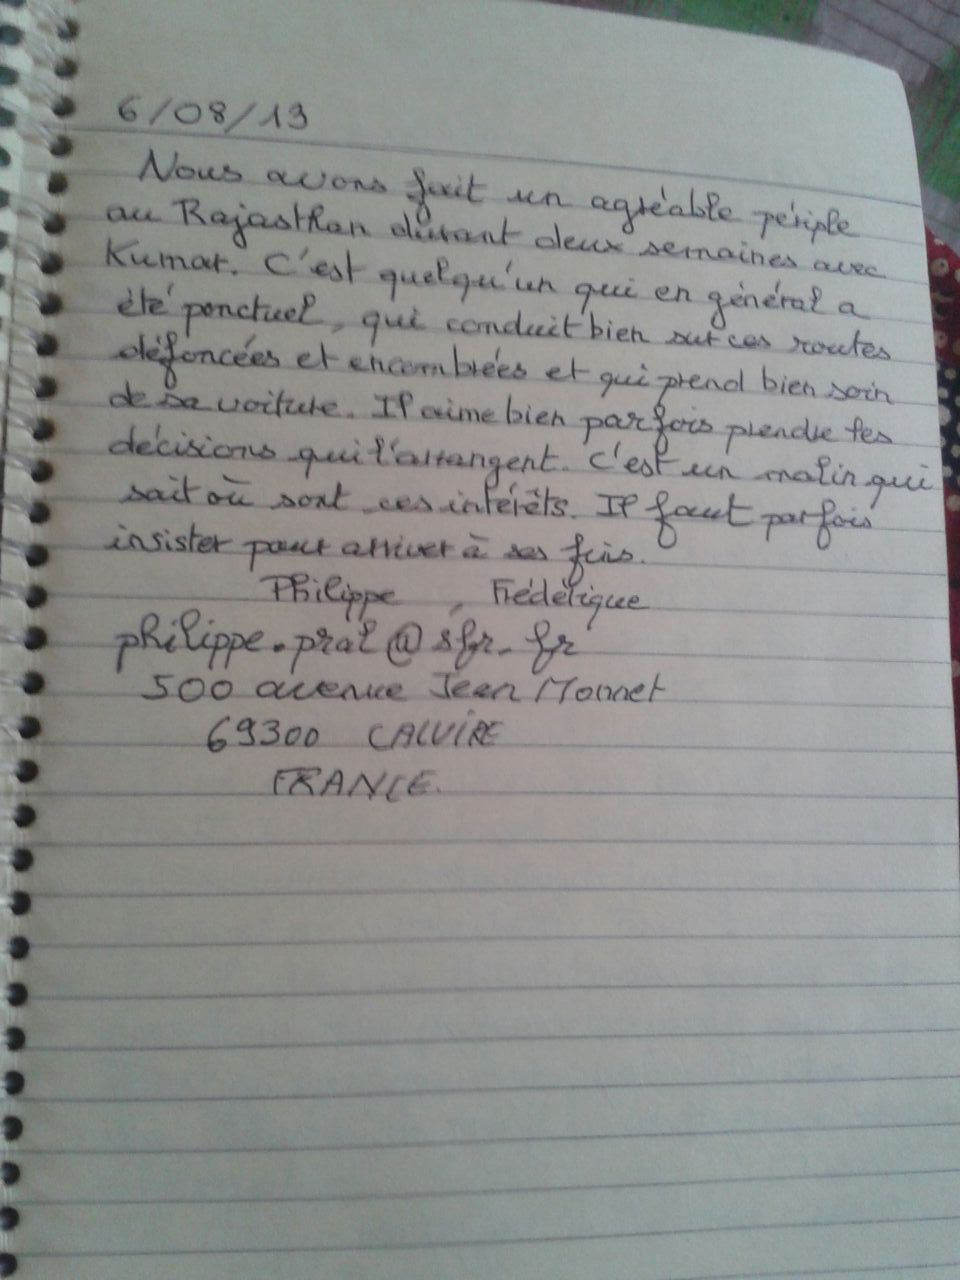 6/08/13
Nous avons fait un agréable périple
au Rajasthan durant deux semaines avec
Kumar. C'est quelqu'un qui en général a
été ponctuel, qui conduit bien sur ces routes
défoncées et encombrées et qui prend bien soin
de sa voiture. Il aime bien parfois prendre les
décisions qui l'arrangent. C'est un malin qui
sait où sont ces intérêts. Il faut parfois
insister pour arriver à ses fins.
Philippe, Frédérique
philippe.pral@sfr.fr
500 avenue Jean Monnet
69300 CALUIRE
FRANCE.